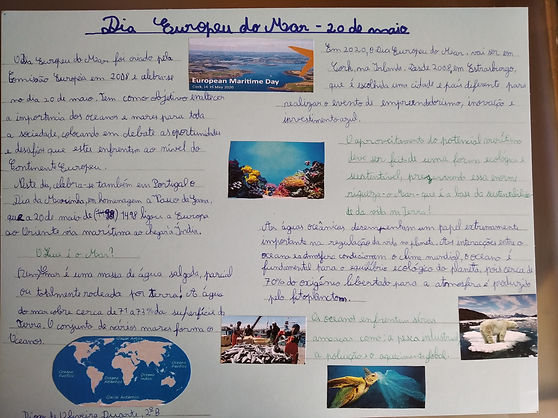 Dia Europeu do Mar - 20 de maio
O Dia Europeu do Mar foi criado pela
Comissão Europeia em 2008 e celebra-se
no dia 20 de maio. Tem como objetivo enaltecer
a importância dos oceanos e mares para toda
a sociedade, colocando em debate as oportunidades
e desafios que estes enfrentam ao nível do
Continente Europeu.
Neste dia, celebra-se também em Portugal o
Dia da Marinha, em homenagem a Vasco da Gama,
que a 20 de maio de 1498 ligou a Europa
ao Oriente via marítima ao chegar à Índia.
O que é o Mar?
O mar é uma massa de água salgada, parcial
ou totalmente rodeada por terra. A água
do mar cobre cerca de 71 a 73% da superfície da
terra. O conjunto de vários mares forma os
Oceanos.
Oceano Ártico
Oceano Pacífico
Oceano Atlântico
Oceano Índico
Oceano Pacífico
Oceano Antártico
Oliveira Duarte, 2ºB
European Maritime Day
Cork, 14 15 May 2020
Em 2020, o Dia Europeu do Mar, vai ser em
Cork, na Irlanda. Desde 2008, em Estrasburgo,
que é escolhida uma cidade e país diferente para
realizar o evento de empreendedorismo, inovação e
investimento azul.
O aproveitamento do potencial marítimo
deve ser feito de uma forma ecológica e
sustentável, preservando essa enorme
riqueza - o Mar - que é a base da sustentabilidade
da vida na Terra!
As águas oceânicas desempenham um papel extremamente
importante na regulação da vida no planeta. As interações entre o
oceano e a atmosfera condicionam o clima mundial, o oceano é
fundamental para o equilíbrio ecológico do planeta, pois cerca de
70% do oxigénio libertado para a atmosfera é produzido
pelo fitoplancton.
Os oceanos enfrentam sérias
ameaças como: a pesca industrial,
a poluição e o aquecimento global.